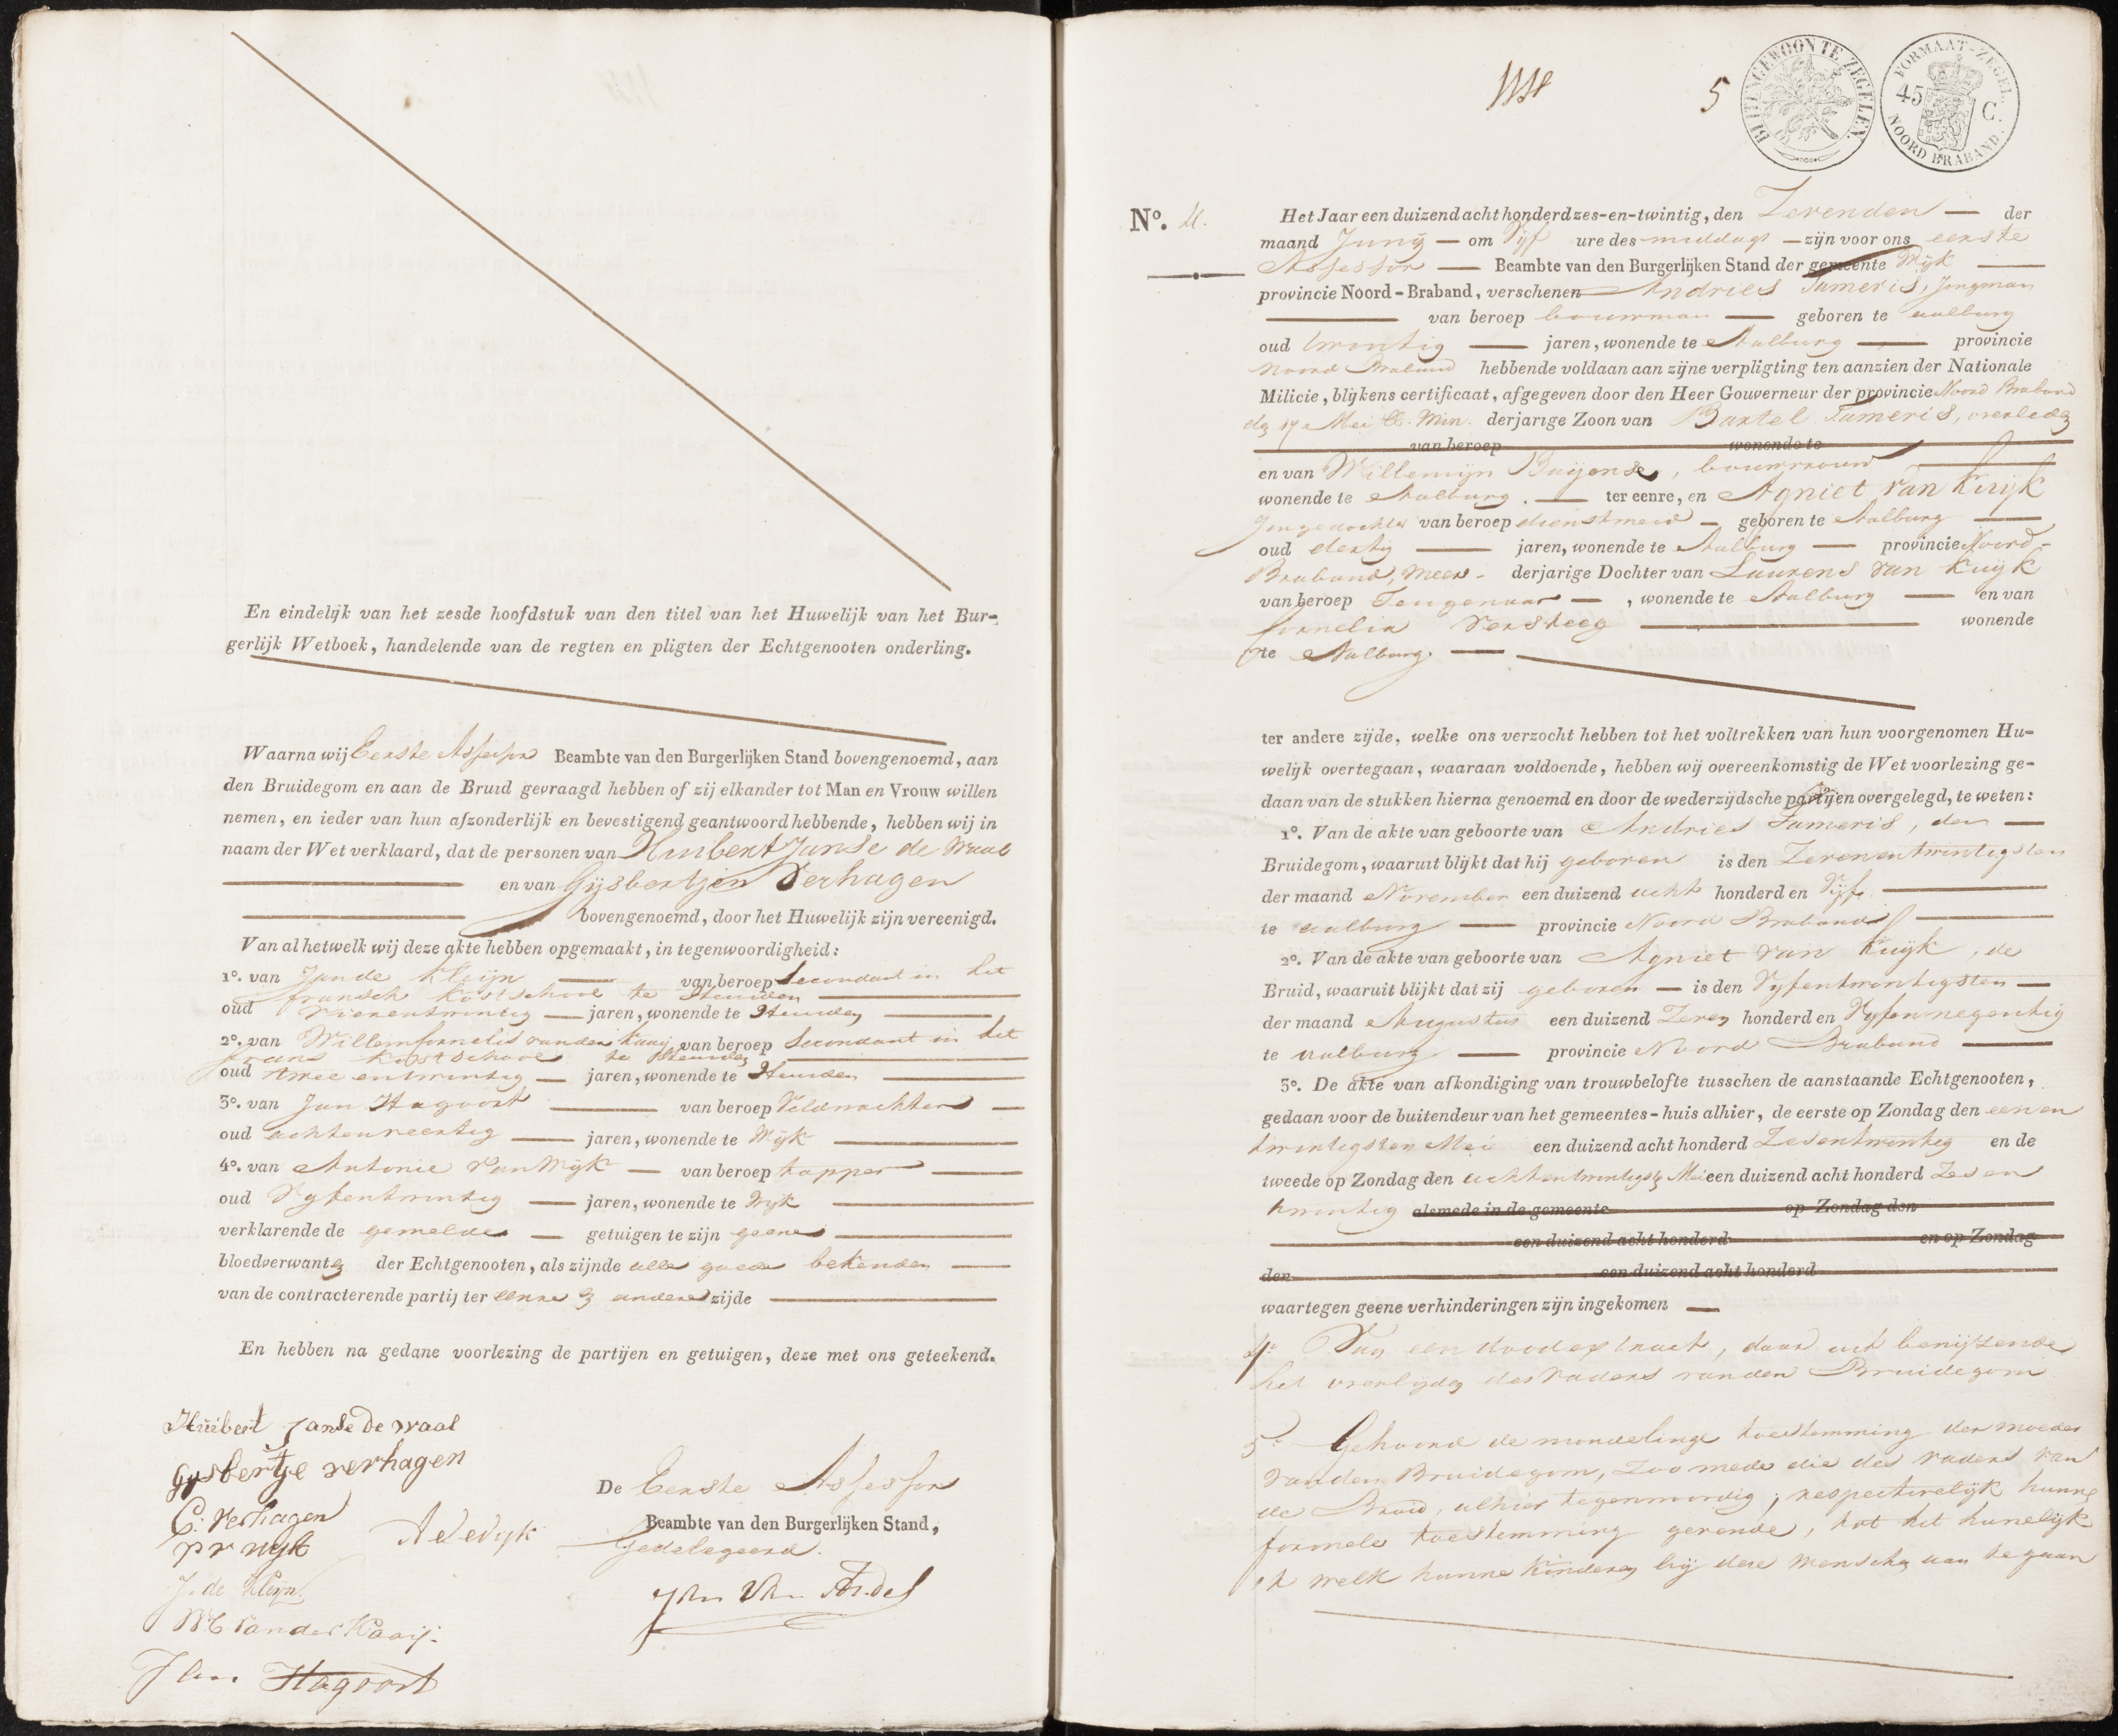 En eindelijk van het zesde hoofdstuk van den titel van het Huwelijk van het Bur-
gerlijk Wetboek, handelende van de regten en pligten der Echtgenooten onderling.
Waarna wij Eerste Assessor Beambte van den Burgerlijken Stand bovengenoemd, aan
den Bruidegom en aan de Bruid gevraagd hebben of zij elkander tot Man en Vrouw willen
nemen, en ieder van hun afzonderlijk en bevestigend geantwoord hebbende, hebben wij in
naam der Wet verklaard, dat de personen van Huibert Janse de Waal
en van Gijsbertjen Verhagen
bovengenoemd, door het Huwelijk zijn vereenigd.
Van al hetwelk wij deze akte hebben opgemaakt, in tegenwoordigheid:
1º. van Jan de Kleijn van beroep Secondant in het
fransch kostschool te Heusden
oud vierentwintig jaren, wonende te Heusden
2º. van Willem Cornelis van der Kaaij van beroep Secondant in het
frans kostschool te Heusden
oud twee entwintig jaren, wonende te Heusden
3º. van Jan Hagoort van beroep Veldwachter
oud achtenveertig jaren, wonende te Wijk
4º. van Antonie van Wijk van beroep tapper
oud Vyfentwintig jaren, wonende te Wijk
verklarende de gemelde getuigen te zijn geene
bloedverwanten der Echtgenooten, als zijnde alle goede bekenden
van de contracterende partij ter eenre en andere zijde
En hebben na gedane voorlezing de partijen en getuigen, deze met ons geteekend.
Huibert Janse De Waal
Gysbertje verhagen
C: Verhagen
J: de Kleijn
WC van der Kaaij.
Jan Hagoort
De Eerste Assessor
Beambte van den Burgerlijken Stand,
Gedelegeerd.
Jan Van Andel
5
BUITENGEWOON TE ZEGELEN.
FORMAAT-ZEGEL.
45 C.
NOORD BRABAND.
Nº.
Het Jaar een duizend acht honderd zes-en-twintig, den Zevenden der
maand Junij om Vijf ure des middags zijn voor ons eerste
Assessor Beambte van den Burgerlijken Stand der gemeente Wijk
provincie Noord-Braband, verschenen Andries Tameris, Jongman
van beroep bouwman geboren te aalburg
oud twintig jaren, wonende te Aalburg provincie
Noord Braband hebbende voldaan aan zijne verpligting ten aanzien der Nationale
Milicie, blijkens certificaat, afgegeven door den Heer Gouverneur der provincie Noord Braband
den 17e Mei ll. Min derjarige Zoon van Bartel Tameris, overleden
van beroep wonende te
en van Willemijn Buijense, bouwvrouw
wonende te Aalburg. ter eenre, en Agniet van Kuijk
Jongedochter van beroep dienstmeid geboren te Aalburg
oud dertig jaren, wonende te Aalburg provincie Noord-
Braband, meer- derjarige Dochter van Laurens van Kuijk
van beroep Teugenaar, wonende te Aalburg en van
Cornelia Versteeg wonende
te Aalburg.
ter andere zijde, welke ons verzocht hebben tot het voltrekken van hun voorgenomen Hu-
welijk overtegaan, waaraan voldoende, hebben wij overeenkomstig de Wet voorlezing ge-
daan van de stukken hierna genoemd en door de wederzijdsche partijen overgelegd, te weten:
1º. Van de akte van geboorte van Andries Tameris, den
Bruidegom, waaruit blijkt dat hij geboren is den Zevenentwintigsten
der maand November een duizend acht honderd en Vijf
te aalburg provincie Noord Braband
2º. Van de akte van geboorte van Agniet van Kuijk, de
Bruid, waaruit blijkt dat zij geboren is den Vyfentwintigsten
der maand Augustus een duizend Zeven honderd en Vyfennegentig
te aalburg provincie Noord Braband
3º. De akte van afkondiging van trouwbelofte tusschen de aanstaande Echtgenooten,
gedaan voor de buitendeur van het gemeentes-huis alhier, de eerste op Zondag den eenen
twintigsten Mei een duizend acht honderd Zesentwintig en de
tweede op Zondag den achtentwintigsten Mei een duizend acht honderd Zesen
twintig alsmede in de gemeente op Zondag den
een duizend acht honderd en op Zondag
den een duizend acht honderd
waartegen geene verhinderingen zijn ingekomen
4º. Van een doodextract, daar uit bewijzende
het overlijden des vaders van den Bruidegom
5º. Gehoord de mondelinge toestemming der moeder
van den Bruidegom, zoo mede die des vaders van
de Bruid, alhier tegenwoordig, respectivelijk hunne
formele toestemming gevende, tot het huwelijk
't welk hunne kinderen bij deze wenschen aan te gaan